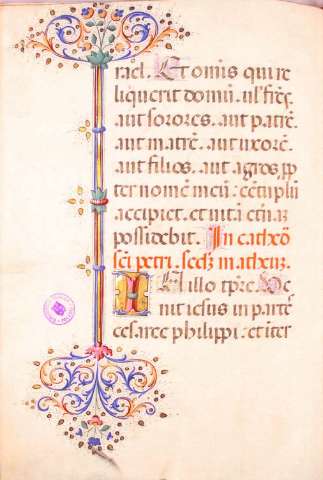 rael. Et omīs qui re
liquerit domū. ul̄ frēs̄.
aut sorores. aut patrē.
aut matrē. aut uxorē.
aut filios. aut agros, ꝓp
ter nomē meū : cētuplū
accipiet. et uitā etnāꝫ
possidebit. In cathed̄
sc̄i petri. secd̄ȝ matheuȝ.
In illo tp̄re. Ve
nit iesus in partes̄
cesaree philippi : et iter